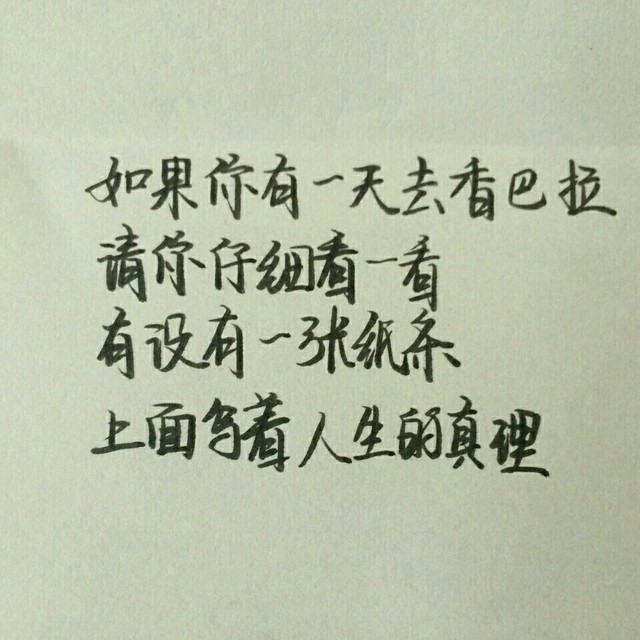 如果你有一天去香巴拉
请你仔细看一看
有没有一张纸条
上面写着人生的真理